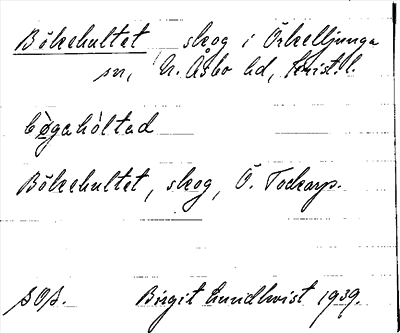 Bökehultet skog i Örkelljunga
sn, N. Åsbo hd, Krist. l.
bø̀gahól̀tad
Bökehultet, skog, Ö. Tockarp.
SOB. Birgit Lundkvist 1939.